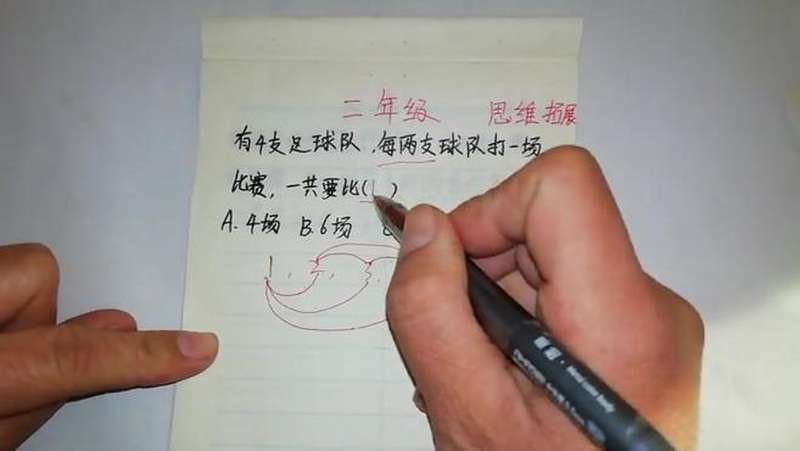 二年级 思维拓展
有4支足球队,每两支球队打一场
比赛,一共要比( )
A.4场 B.6场